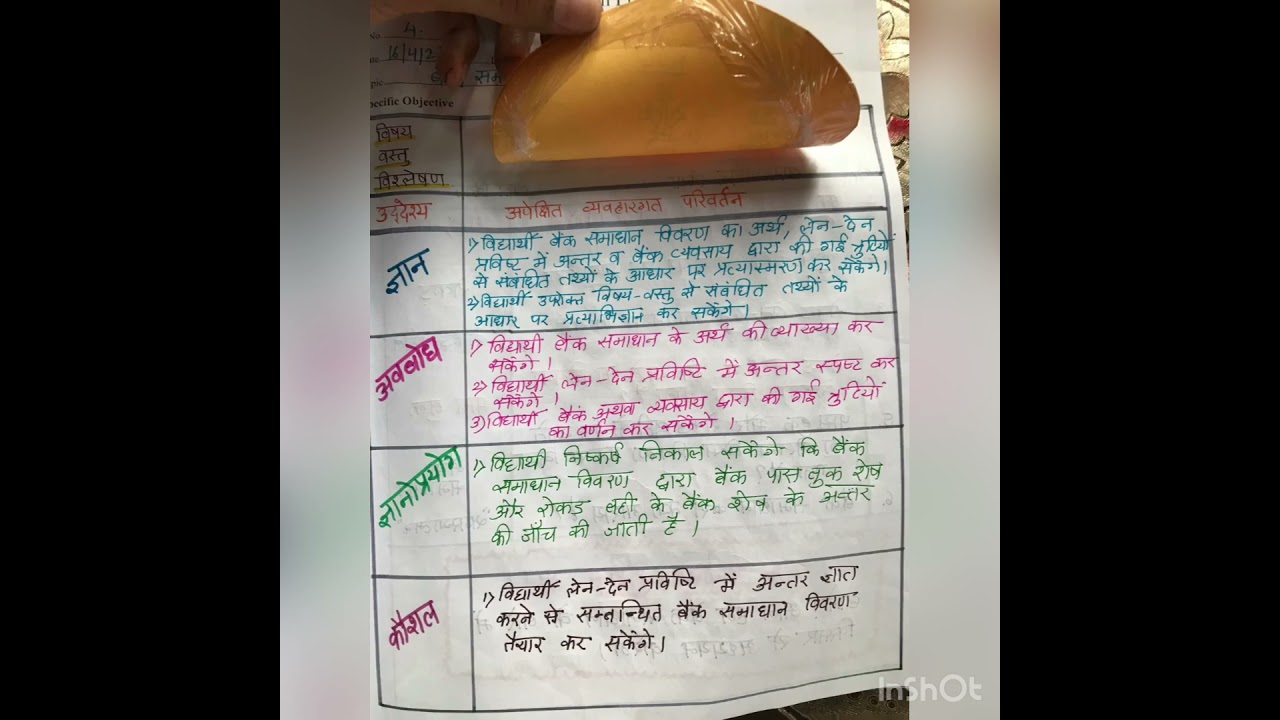 No. 4.
16/4/2
Specific Objective
विषय
वस्तु
विश्लेषण
उद्देश्य अपेक्षित व्यवहारगत परिवर्तन
ज्ञान
1) विद्यार्थी बैंक समाधान विवरण का अर्थ, लेन-देन
प्रविष्ट में अन्तर व बैंक व्यवसाय द्वारा की गई त्रुटियों
से संबंधित तथ्यों के आधार पर प्रत्यास्मरण कर सकेंगे।
2) विद्यार्थी उपरोक्त विषय-वस्तु से संबंधित तथ्यों के
आधार पर प्रत्याभिज्ञान कर सकेंगे।
अवबोध
1) विद्यार्थी बैंक समाधान के अर्थ की व्याख्या कर
सकेंगे।
2) विद्यार्थी लेन-देन प्रविष्टि में अन्तर स्पष्ट कर
सकेंगे।
3) विद्यार्थी बैंक अथवा व्यवसाय द्वारा की गई त्रुटियों
का वर्णन कर सकेंगे।
ज्ञानोप्रयोग
1) विद्यार्थी निष्कर्ष निकाल सकेंगे कि बैंक
समाधान विवरण द्वारा बैंक पास बुक शेष
और रोकड बही के बैंक शेष के अन्तर
की जाँच की जाती है।
कौशल
1) विद्यार्थी लेन-देन प्रविष्टि में अन्तर ज्ञात
करने से सम्बन्धित बैंक समाधान विवरण
तैयार कर सकेंगे।
InShOt